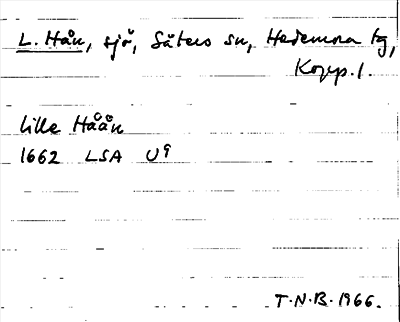 L. Hån, sjö, Säters sn, Hedemora tg,
Kopp. l.
lille Håån
1662 LSA U9
T.N.B. 1966.